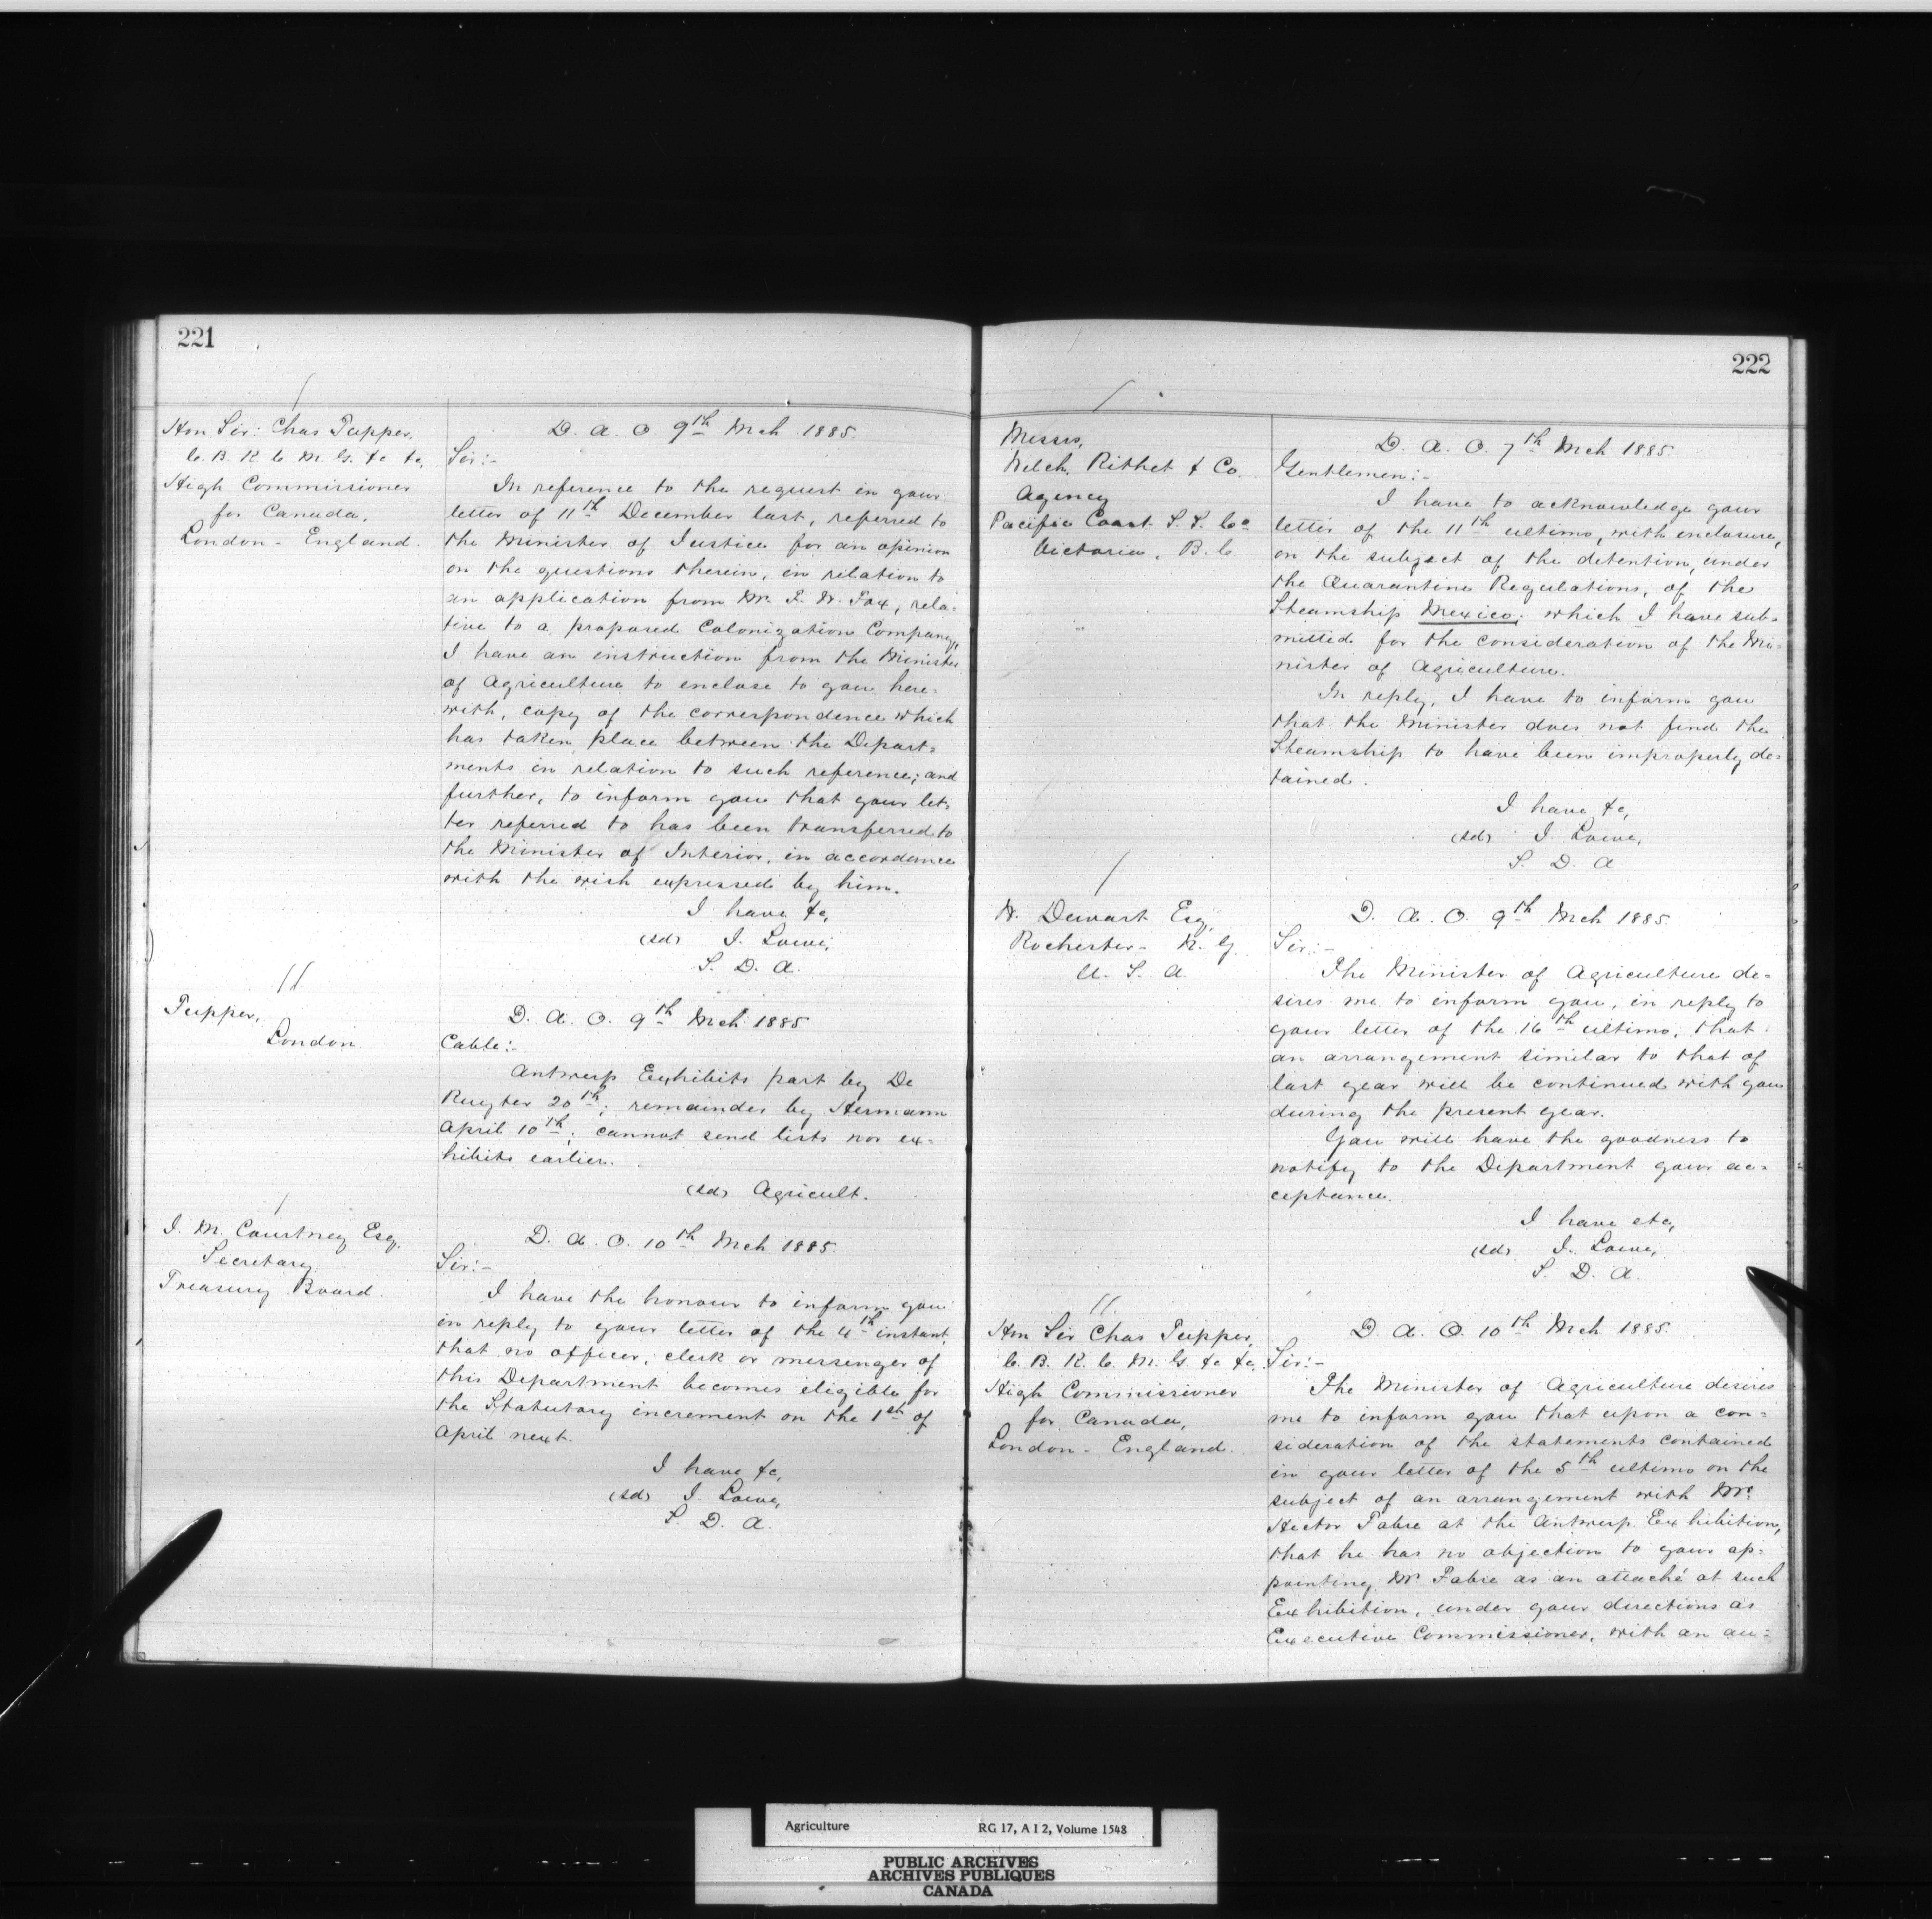 221
Hon Sir: Chas Tupper,
C. B. K C M. G. &c &c,
High Commissioner
for Canada,
London - England.
D. A. O. 9th Mch 1885.
Sir:-
In reference to the request in your
letter of 11th December last, referred to
the Minister of Justice for an opinion
on the questions therein, in relation to
an application from Mr. F. W. Fox, rela=
tive to a proposed Colonization Company,
I have an instruction from the Minister
of Agriculture to enclose to you here=
with, copy of the correspondence which
has taken place between the Depart=
ments in relation to such reference; and
further, to inform you that your let=
ter referred to has been transferred to
the Minister of Interior, in accordance
with the wish expressed by him.
I have &c,
(sd) J. Lowe,
S. D. A.
Tupper,
London
D. A. O. 9th Mch 1885
Cable:-
Antwerp Exhibits part by De
Ruyter 20th; remainder by Hermann
April 10th; cannot send lists nor ex=
hibits earlier.
(sd) Agricult.
J. M. Courtney Esq.
Secretary
Treasury Board.
D. A. O. 10th Mch 1885.
Sir:-
I have the honour to inform you
in reply to your letter of the 4th instant,
that no officer, clerk or messenger of
this Department becomes eligible for
the Statutory increment on the 1st of
April next.
I have &c,
(sd) J. Lowe,
S. D. A.
222
Messrs,
Welch, Rithet & Co.
Agency
Pacific Coast S. S. Co
Victoria, B. C
D. A. O. 7th Mch 1885
Gentlemen:-
I have to acknowledge your
letter of the 11th ultimo, with enclosure,
on the subject of the detention, under
the Quarantine Regulations, of the
Steamship Mexico; which I have sub=
mitted for the consideration of the Mi=
nister of Agriculture.
In reply, I have to inform you
that the Minister does not find the
Steamship to have been improperly de=
tained.
I have &c,
(sd) J. Lowe,
S. D. A
W. Dewart Esq,
Rochester - N. Y.
U. S. A
D. A. O. 9th Mch 1885.
Sir:-
The Minister of Agriculture de=
sires me to inform you, in reply to
your letter of the 16th ultimo, that
an arrangement similar to that of
last year will be continued with you
during the present year.
You will have the goodness to
notify to the Department your ac=
ceptance.
I have etc,
(sd) J. Lowe,
S. D. A.
Hon Sir Chas Tupper,
C. B. K. C. M. G. &c &c,
High Commissioner
for Canada,
London - England.
D. A. O. 10th Mch 1885.
Sir:-
The Minister of Agriculture desires
me to inform you that upon a con=
sideration of the statements contained
in your letter of the 5th ultimo on the
subject of an arrangement with Mr.
Hector Fabre at the Antwerp Exhibition,
that he has no objection to your ap=
pointing Mr. Fabre as an attaché at such
Exhibition, under your directions as
Executive Commissioner, with an au=
Agriculture RG 17, A I 2, Volume 1548
PUBLIC ARCHIVES
ARCHIVES PUBLIQUES
CANADA